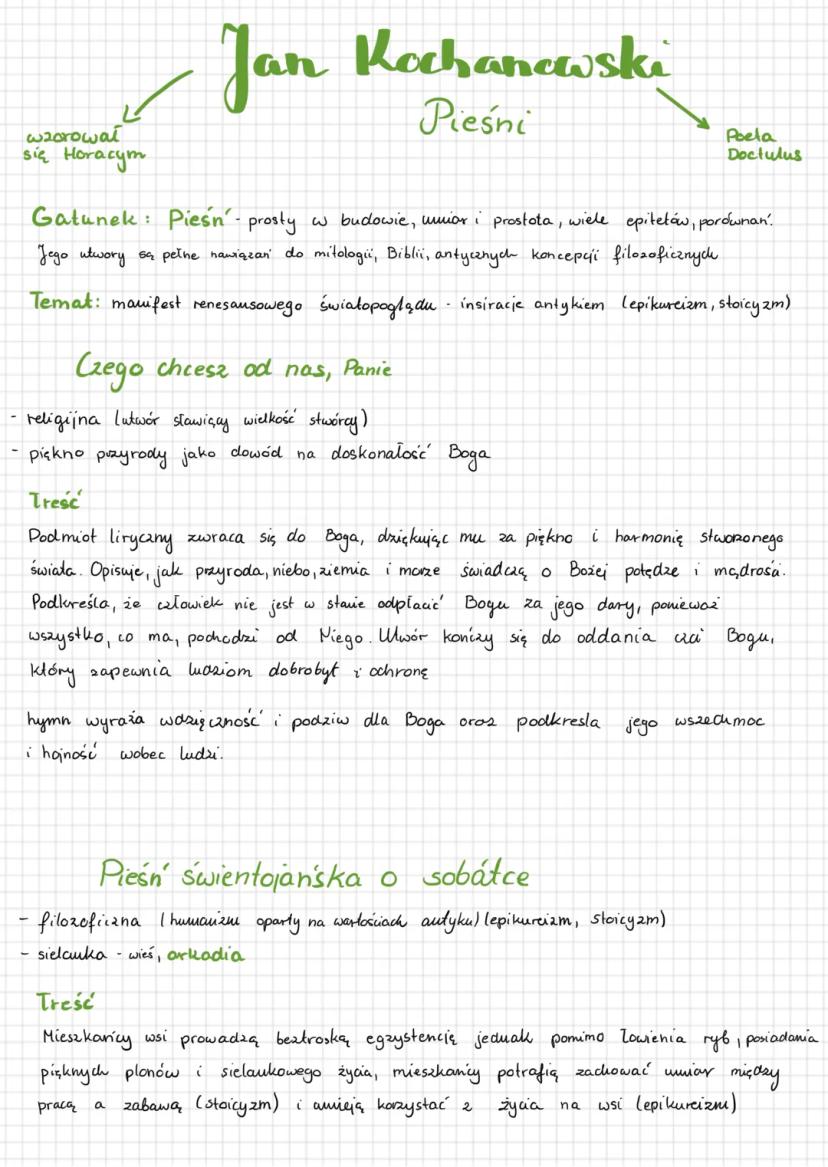 Jan Kochanowski
Pieśni
wzorował
się Horacym
Poeta
Doctulus
Gatunek: Pieśń - prosty w budowie, umiar i prostota, wiele epitetów, porównań.
Jego utwory są pełne nawiązań do mitologii, Biblii, antycznych koncepcji filozoficznych
Temat: manifest renesansowego światopoglądu - insiracje antykiem (epikureizm, stoicyzm)
Czego chcesz od nas, Panie
- religijna (utwór sławiący wielkość stwórcy)
- piękno przyrody jako dowód na doskonałość Boga
Treść
Podmiot liryczny zwraca się do Boga, dziękując mu za piękno i harmonię stworzonego
świata. Opisuje, jak przyroda, niebo, ziemia i morze świadczą o Bożej potędze i mądrości.
Podkreśla, że człowiek nie jest w stanie odpłacić Bogu za jego dary, ponieważ
wszystko, co ma, pochodzi od Niego. Utwór kończy się do oddania czci Bogu,
który zapewnia ludziom dobrobyt i ochronę
hymn wyraża wdzięczność i podziw dla Boga oraz podkresla jego wszechmoc
i hojność wobec ludzi.
Pieśń świentojańska o sobótce
- filozoficzna (humanizm oparty na wartościach antyku) (epikureizm, stoicyzm)
- sielanka - wieś, arkadia
Treść
Mieszkańcy wsi prowadzą beztroską egzystencję jednak pomimo łowienia ryb, posiadania
pięknych plonów i sielankowego życia, mieszkańcy potrafią zachować umiar między
pracą a zabawą (stoicyzm) i umieją korzystać z życia na wsi (epikureizm)